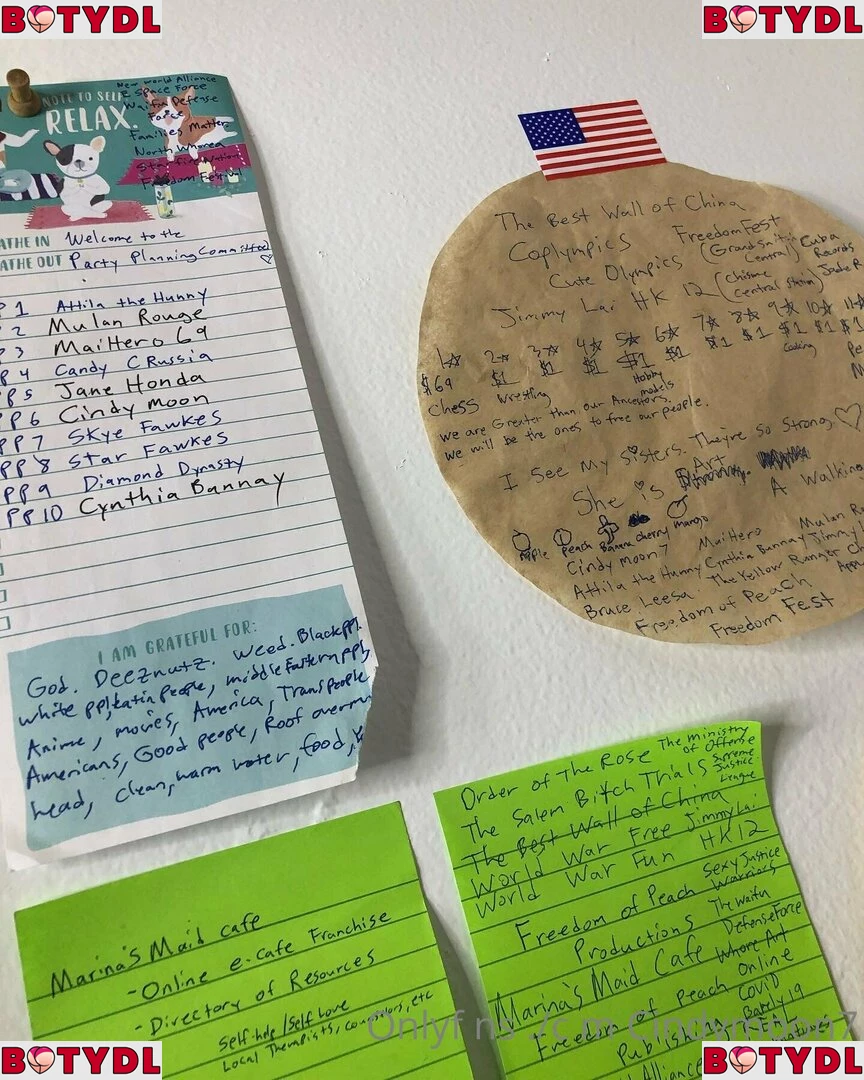 BOTYDL
BOTYDL
NOTE TO SELF
RELAX.
New World Alliance
& Space Force
Waifu Defense
Force
Families Matter
North Whorea
Starfire Nation
Freedom Festival
ATHE IN Welcome to the
ATHE OUT Party Planning Committee
P 1 Attila the Hunny
P 2 Mulan Rouge
P 3 MaiHero 69
P 4 Candy C Russia
PP 5 Jane Honda
PP 6 Cindy moon
PP 7 Skye Fawkes
PP 8 Star Fawkes
PP 9 Diamond Dynasty
PP 10 Cynthia Bannay
I AM GRATEFUL FOR:
God. Deeznutz. Weed. Black ppl.
white ppl, Latin people, middle Eastern ppl,
Anime, movies, America, Trans people
Americans, Good people, Roof over my
head, clean, warm water, food,
The Best Wall of China
Coplympics FreedomFest
Cute Olympics (Grand Central) Cuba Records
Jimmy Lai HK 12 (Chisme Central Station) Jade R
1☆ 2☆ 3☆ 4☆ 5☆ 6☆ 7☆ 8☆ 9☆ 10☆ 11☆
$69 $1 $1 $1 $1 $1 $1 $1 $1 $1 $1
Chess Wrestling Hobby models Cooking
we are Greater than our Ancestors.
we will be the ones to free our people.
I see my sisters. They're so strong. ♡
She is Art A Walking
Apple Peach Banana cherry mango
Cindy moon 7 MaiHero Mulan Ro
Attila the Hunny Cynthia Bannay Jimmy
Bruce Leesa The Yellow Ranger
Freedom of Peach
Freedom Fest
Order of The Rose The ministry of Offense
The Salem Bitch Trials Supreme Justice League
The Best Wall of China
World War Free Jimmy Lai
World War Fun HK12
Freedom of Peach Sexy Justice Warriors
Productions The Waifu
Marina's Maid Cafe Defense Force
Freedom of Peach Whore Art Online
Publish Covid
Barely 19
Alliance
Marina's Maid cafe
- Online e-cafe Franchise
- Directory of Resources
Self-help/Self love
Local Therapists, counselors, etc
Onlyf ns ./c m Cindymoon7
BOTYDL
BOTYDL